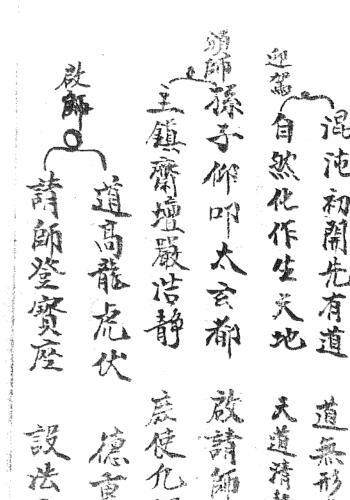 迎駕
混沌初開先有道 道無形
自然化作生天地 天道清
頌師
孫子仰叩太玄都 啟請師
主鎮齋壇嚴浩静 庶使凡
啟師
道高龍虎伏 德重
請師登寶座 設法